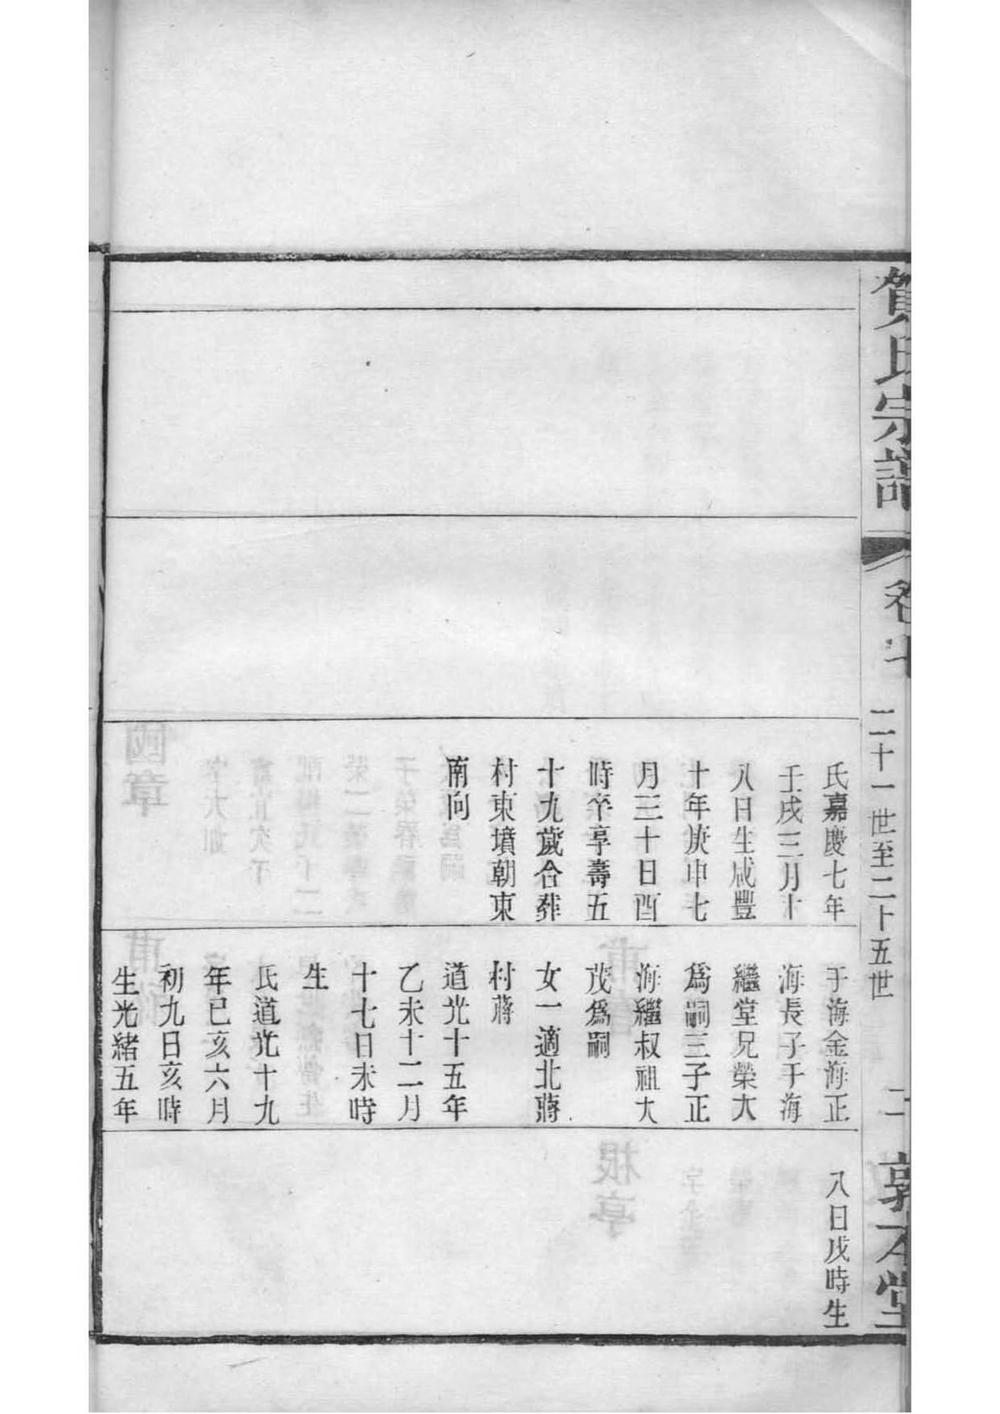 賀氏宗譜
卷七
二十一世至二十五世
二
敦本堂
氏嘉慶七年
壬戌三月十
八日生咸豐
十年庚申七
月三十日酉
時卒享壽五
十九歲合葬
村東墳朝東
南向
于海金海正
海長子于海
繼堂兄榮大
爲嗣三子正
海繼叔祖大
茂爲嗣
女一適北蔣
村蔣
道光十五年
乙未十二月
十七日未時
生
氏道光十九
年已亥六月
初九日亥時
生光緒五年
八日戌時生